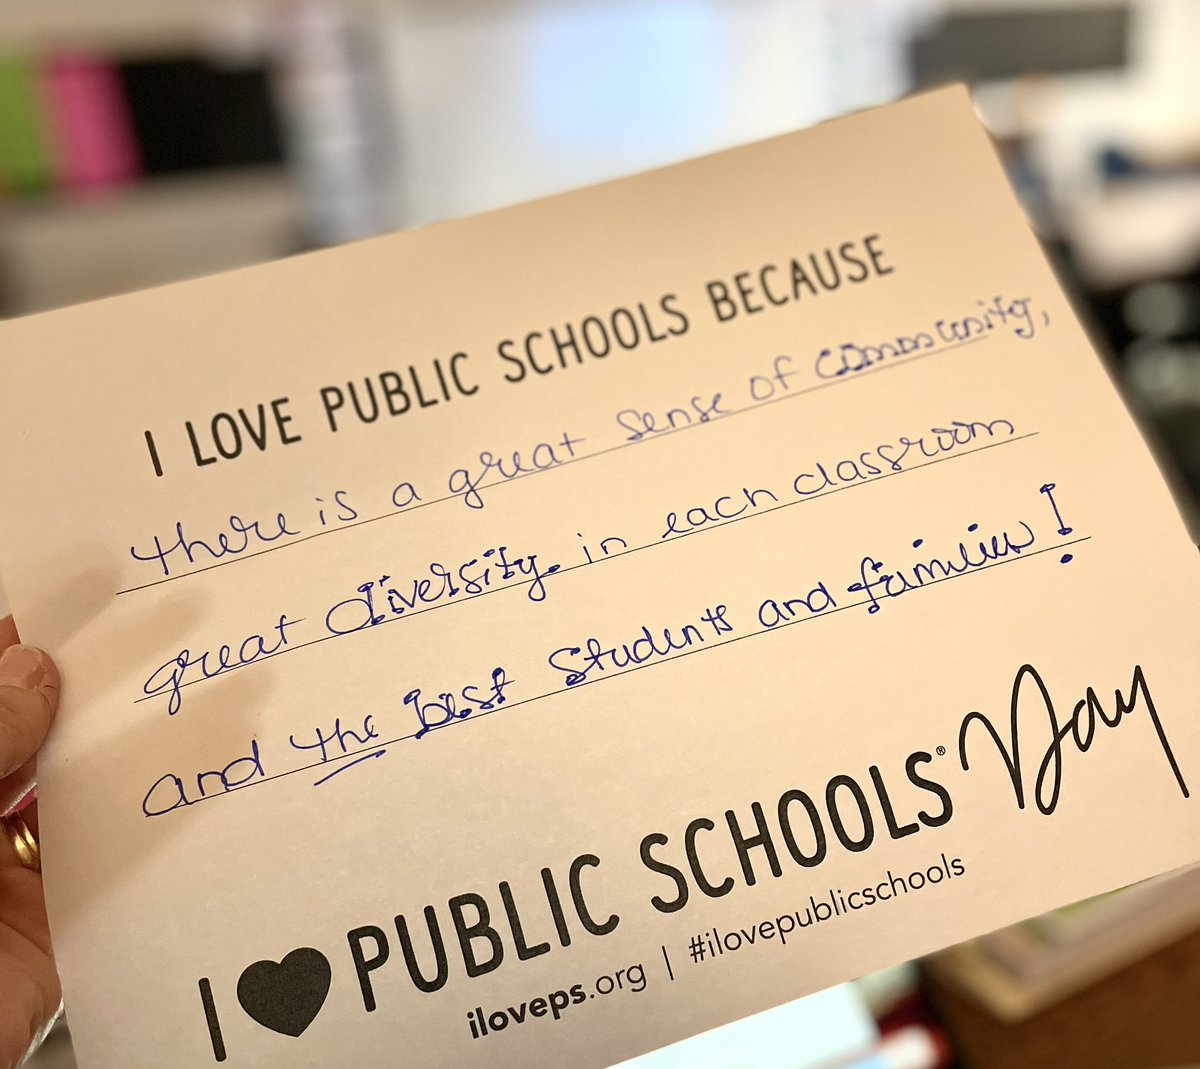 I LOVE PUBLIC SCHOOLS BECAUSE
there is a great sense of community,
great diversity. in each classroom
and the best students and families!
I ♥ PUBLIC SCHOOLS® Day
iloveps.org | #ilovepublicschools